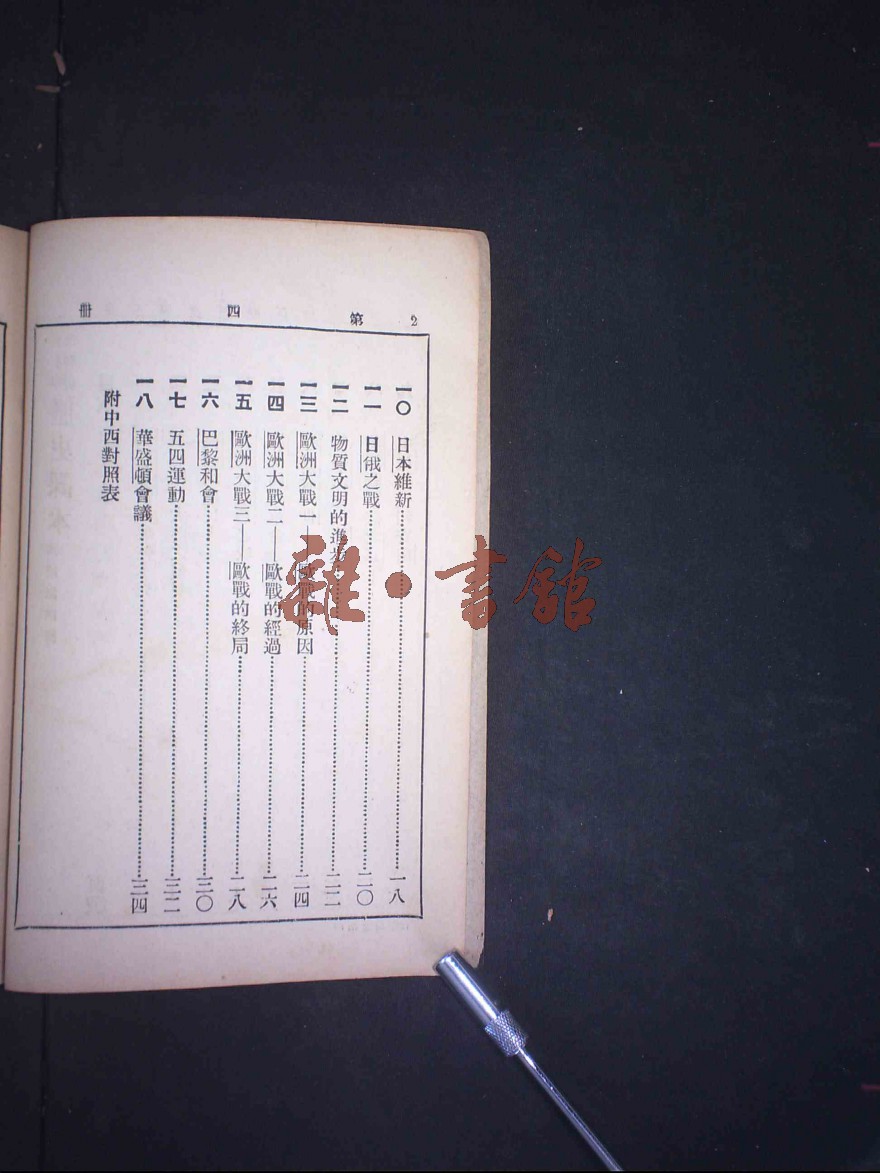 2 第四冊
一〇 日本維新……一八
一一 日俄之戰……二〇
一二 物質文明的進步……二二
一三 歐洲大戰一——歐戰的原因……二四
一四 歐洲大戰二——歐戰的經過……二六
一五 歐洲大戰三——歐戰的終局……二八
一六 巴黎和會……三〇
一七 五四運動……三二
一八 華盛頓會議……三四
附中西對照表
雜·書館